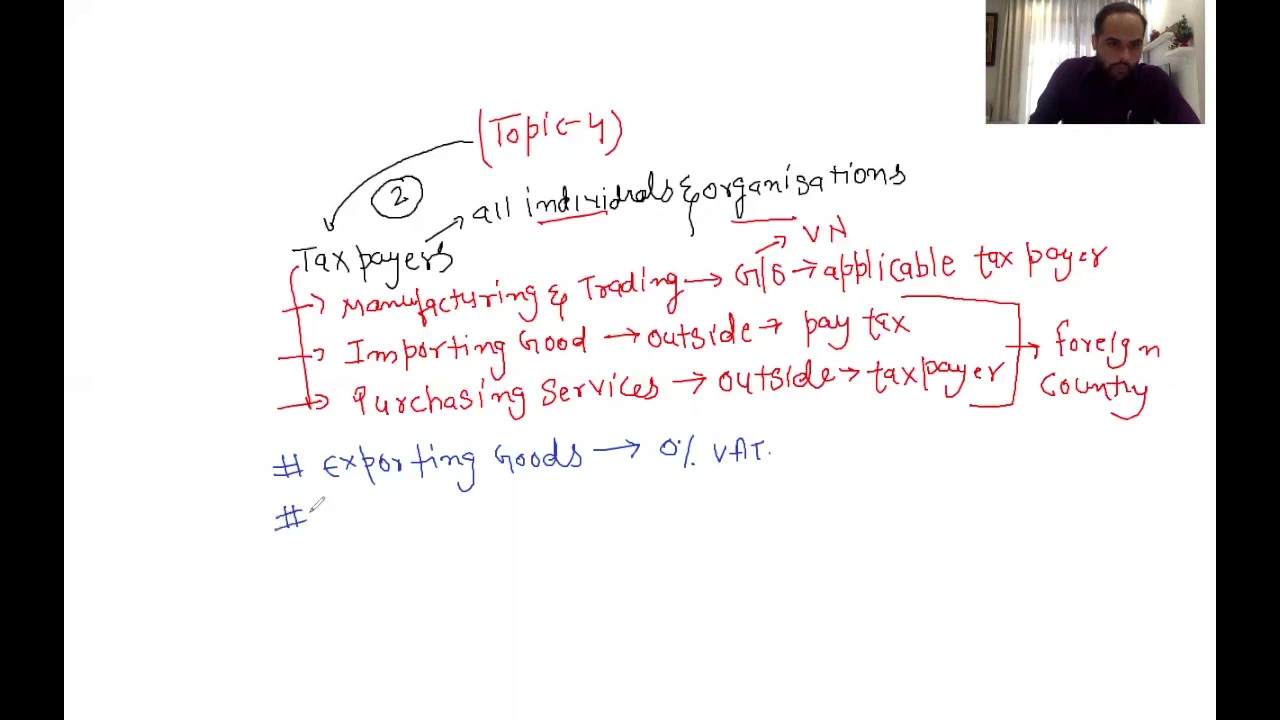 (Topic-4)
2
all individuals & organisations
Taxpayers
VN
→ Manufacturing & Trading → G/S → applicable tax payer
→ Importing Good → outside → pay tax
→ Purchasing Services → outside → taxpayer
foreign
Country
# Exporting Goods → 0% VAT.
#